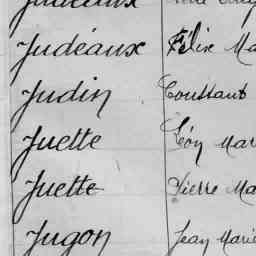 Judéaux Félix Ma
Judin Toussaint
Juette Léon Mar
Juette Pierre Ma
Jugon Jean Marie